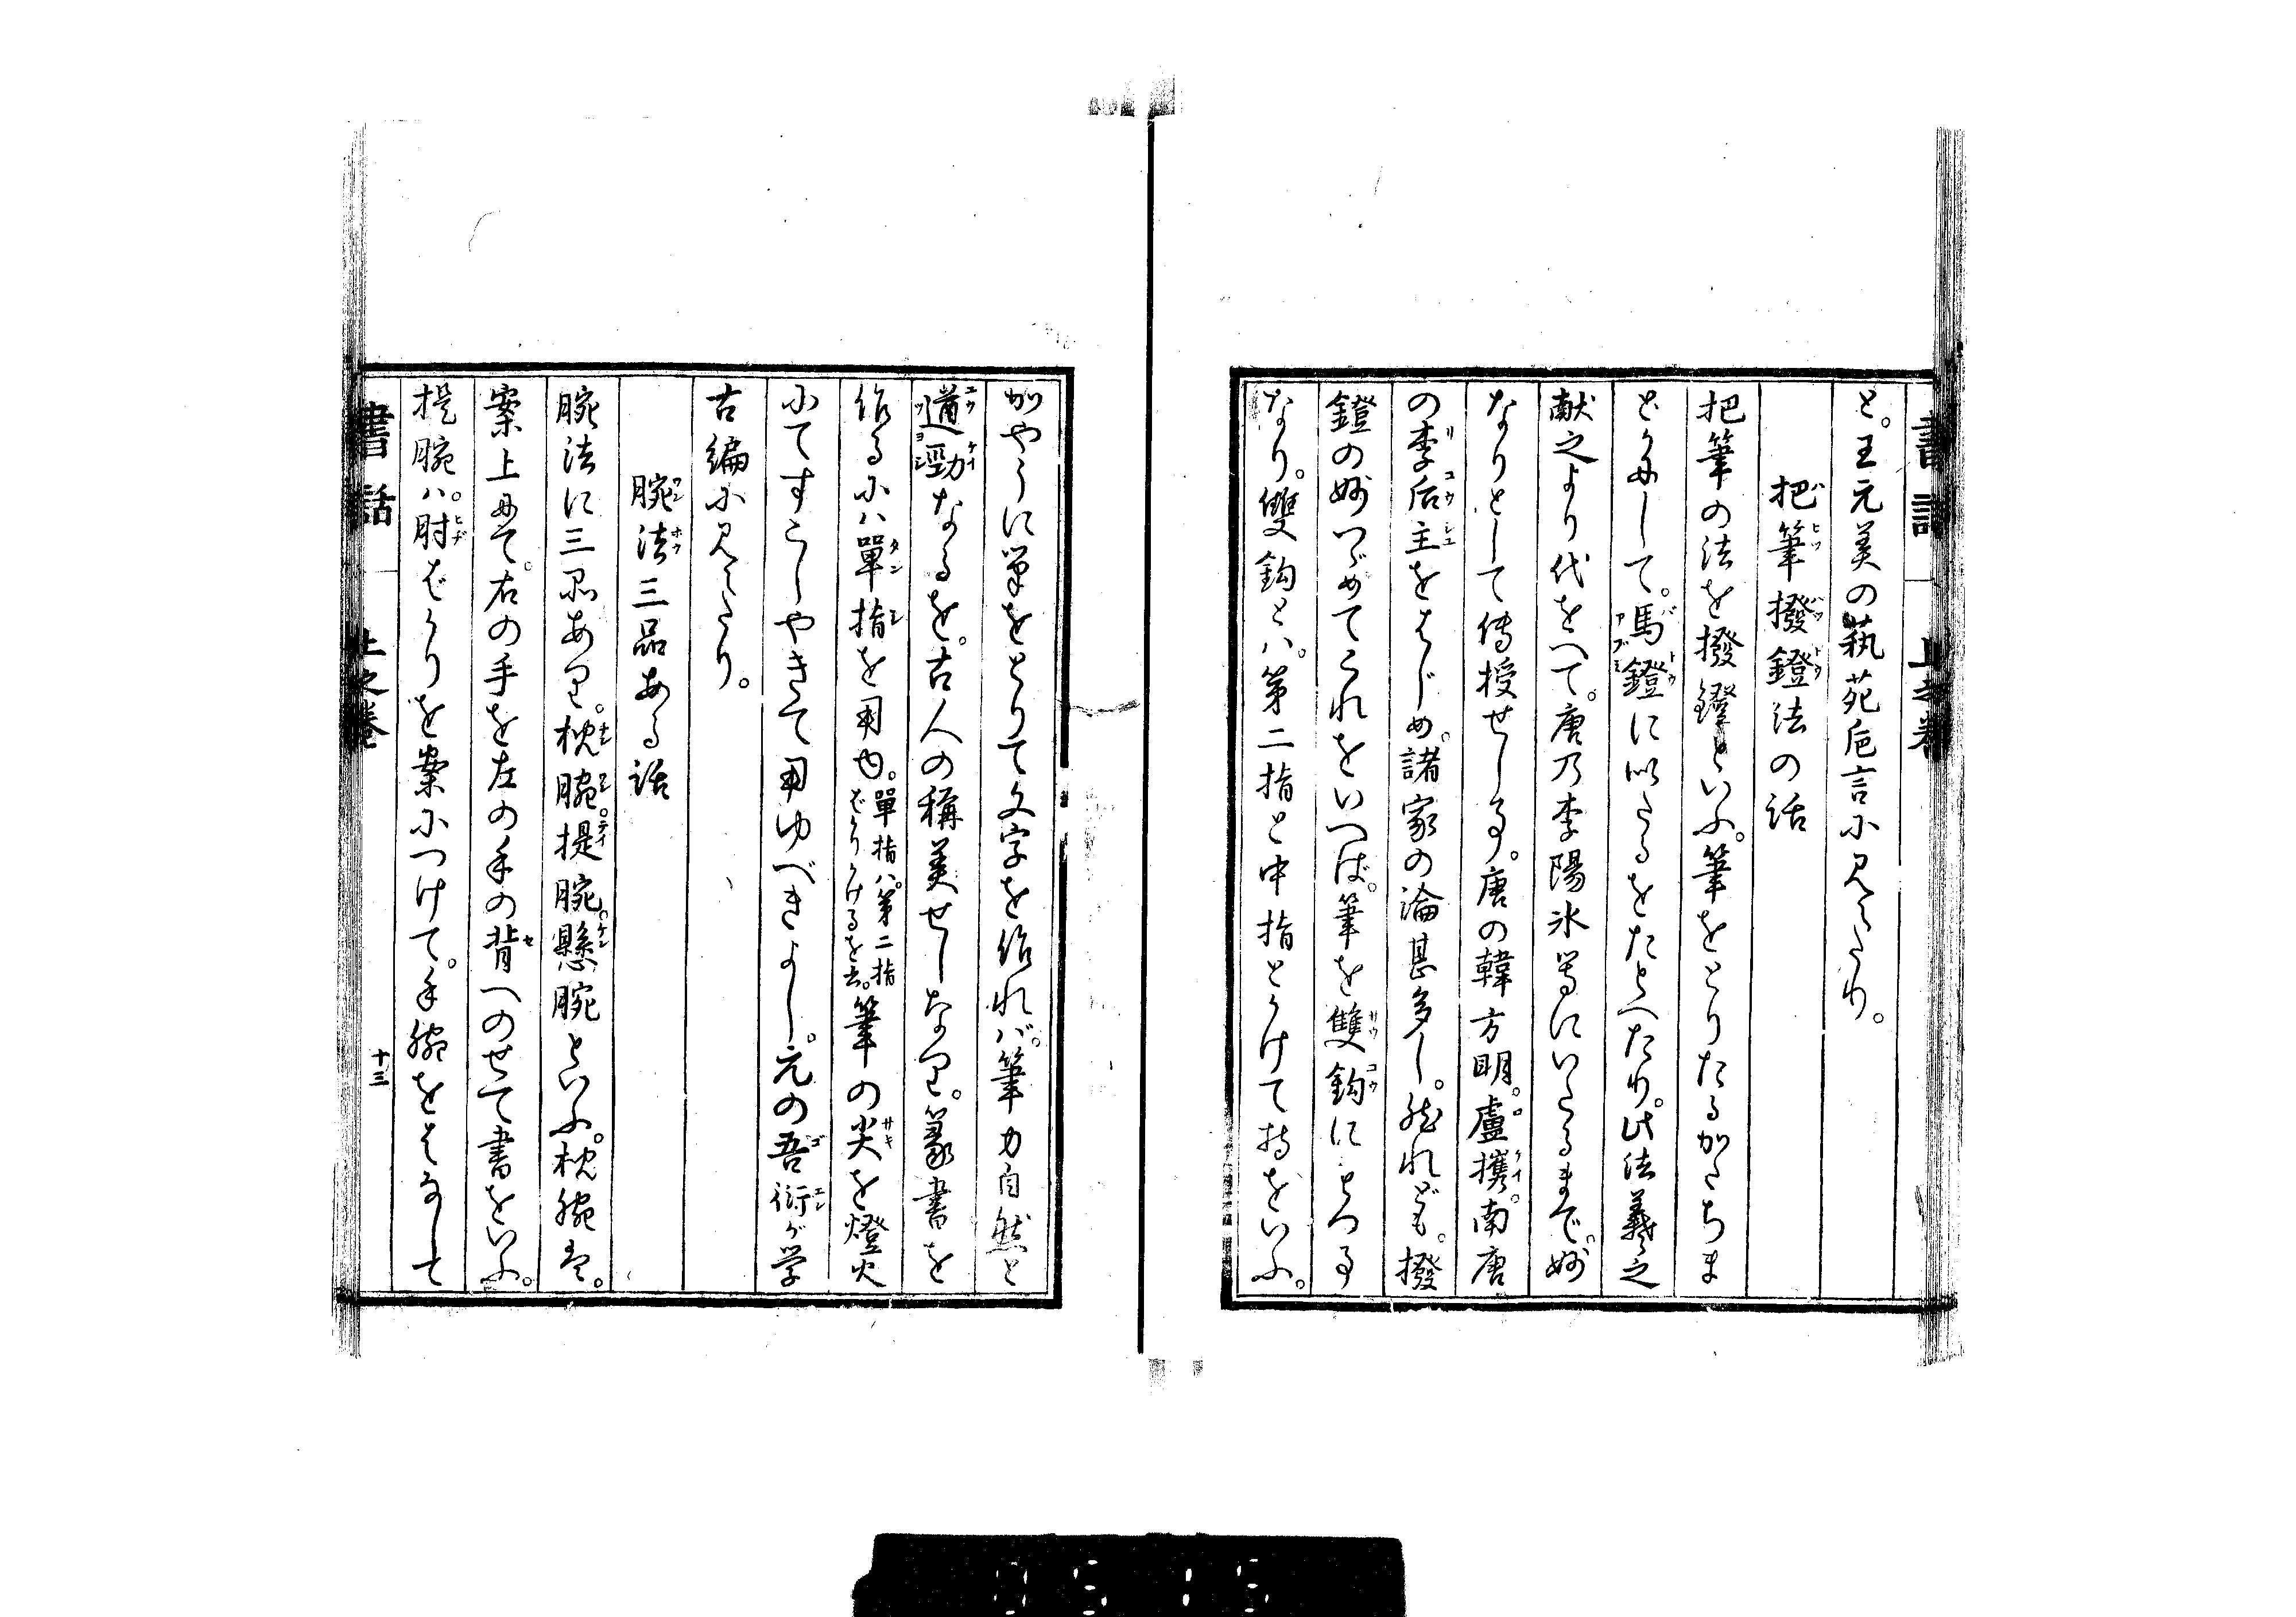 書話 上之巻
と。王元美の藝苑巵言に見えたり。
把筆撥鐙法の話
把筆の法を撥鐙といふ。筆をとりたるかたちま
どかにして。馬鐙に似たるをたとへたり。此法羲之
献之より代をへて。唐乃李陽氷等にいたるまで。妙
なりとして傳授せし事。唐の韓方明。盧携。南唐
の李后主をはじめ。諸家の論甚多し。然れども。撥
鐙の妙つゞめてこれをいへば。筆を雙鈎にもつ事
なり。雙鈎とハ。第二指と中指とかけて持をいふ。
かやうに筆をとりて文字を作れバ。筆力自然と
遒勁なるを。古人の稱美せしなり。篆書を
作るにハ單指を用也。單指ハ。第二指ばかりかけるを云。筆の尖を燈火
にてすこしやきて用ゆべきよし。元の吾衍が学
古編に見えたり。
腕法三品ある話
腕法に三品あり。枕腕。提腕。懸腕といふ。枕腕は。
案上にて。右の手を左の手の背へのせて書をいふ。
提腕ハ。肘ばかりを案につけて。手腕をはなして
書話 上之巻 十三